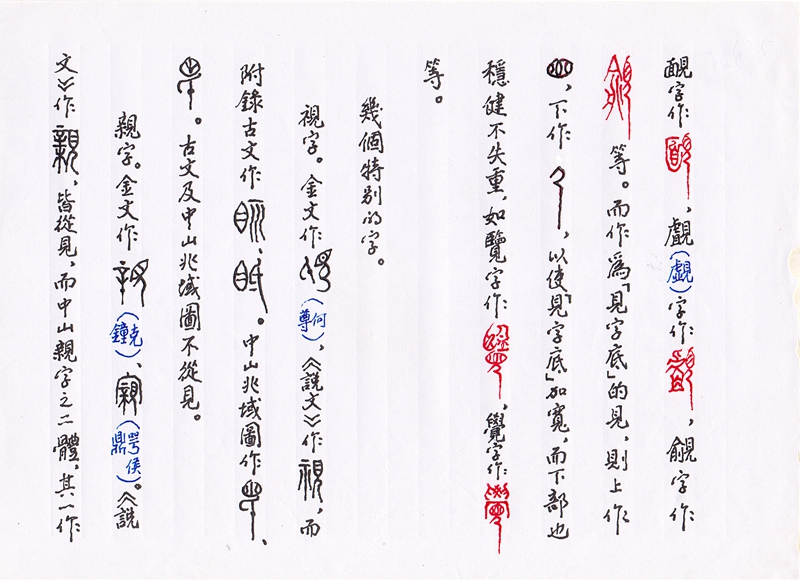 靦字作，覰（覷）字作，覦字作
等。而作為「見字底」的見，則上作
，下作，以使「見字底」加寬，而下部也
穩健不失重，如覽字作，覺字作
等。
幾個特別的字。
視字。金文作（何尊），《說文》作視，而
附錄古文作眎、眡。中山兆域圖作、
。古文及中山兆域圖不從見。
親字。金文作（克鐘）、（噩侯鼎）。《說
文》作親，皆從見，而中山親字之二體，其一作